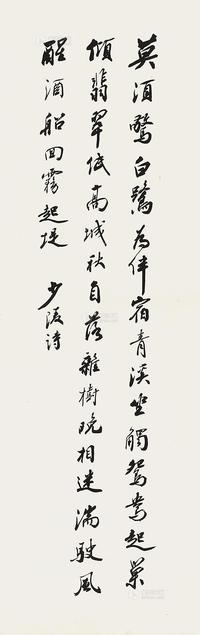 莫須驚白鷺為伴宿青溪坐觸鴛鴦起巢
傾翡翠低高城秋自落雜樹晚相迷湍駛風
醒酒船回霧起堤 少陵詩